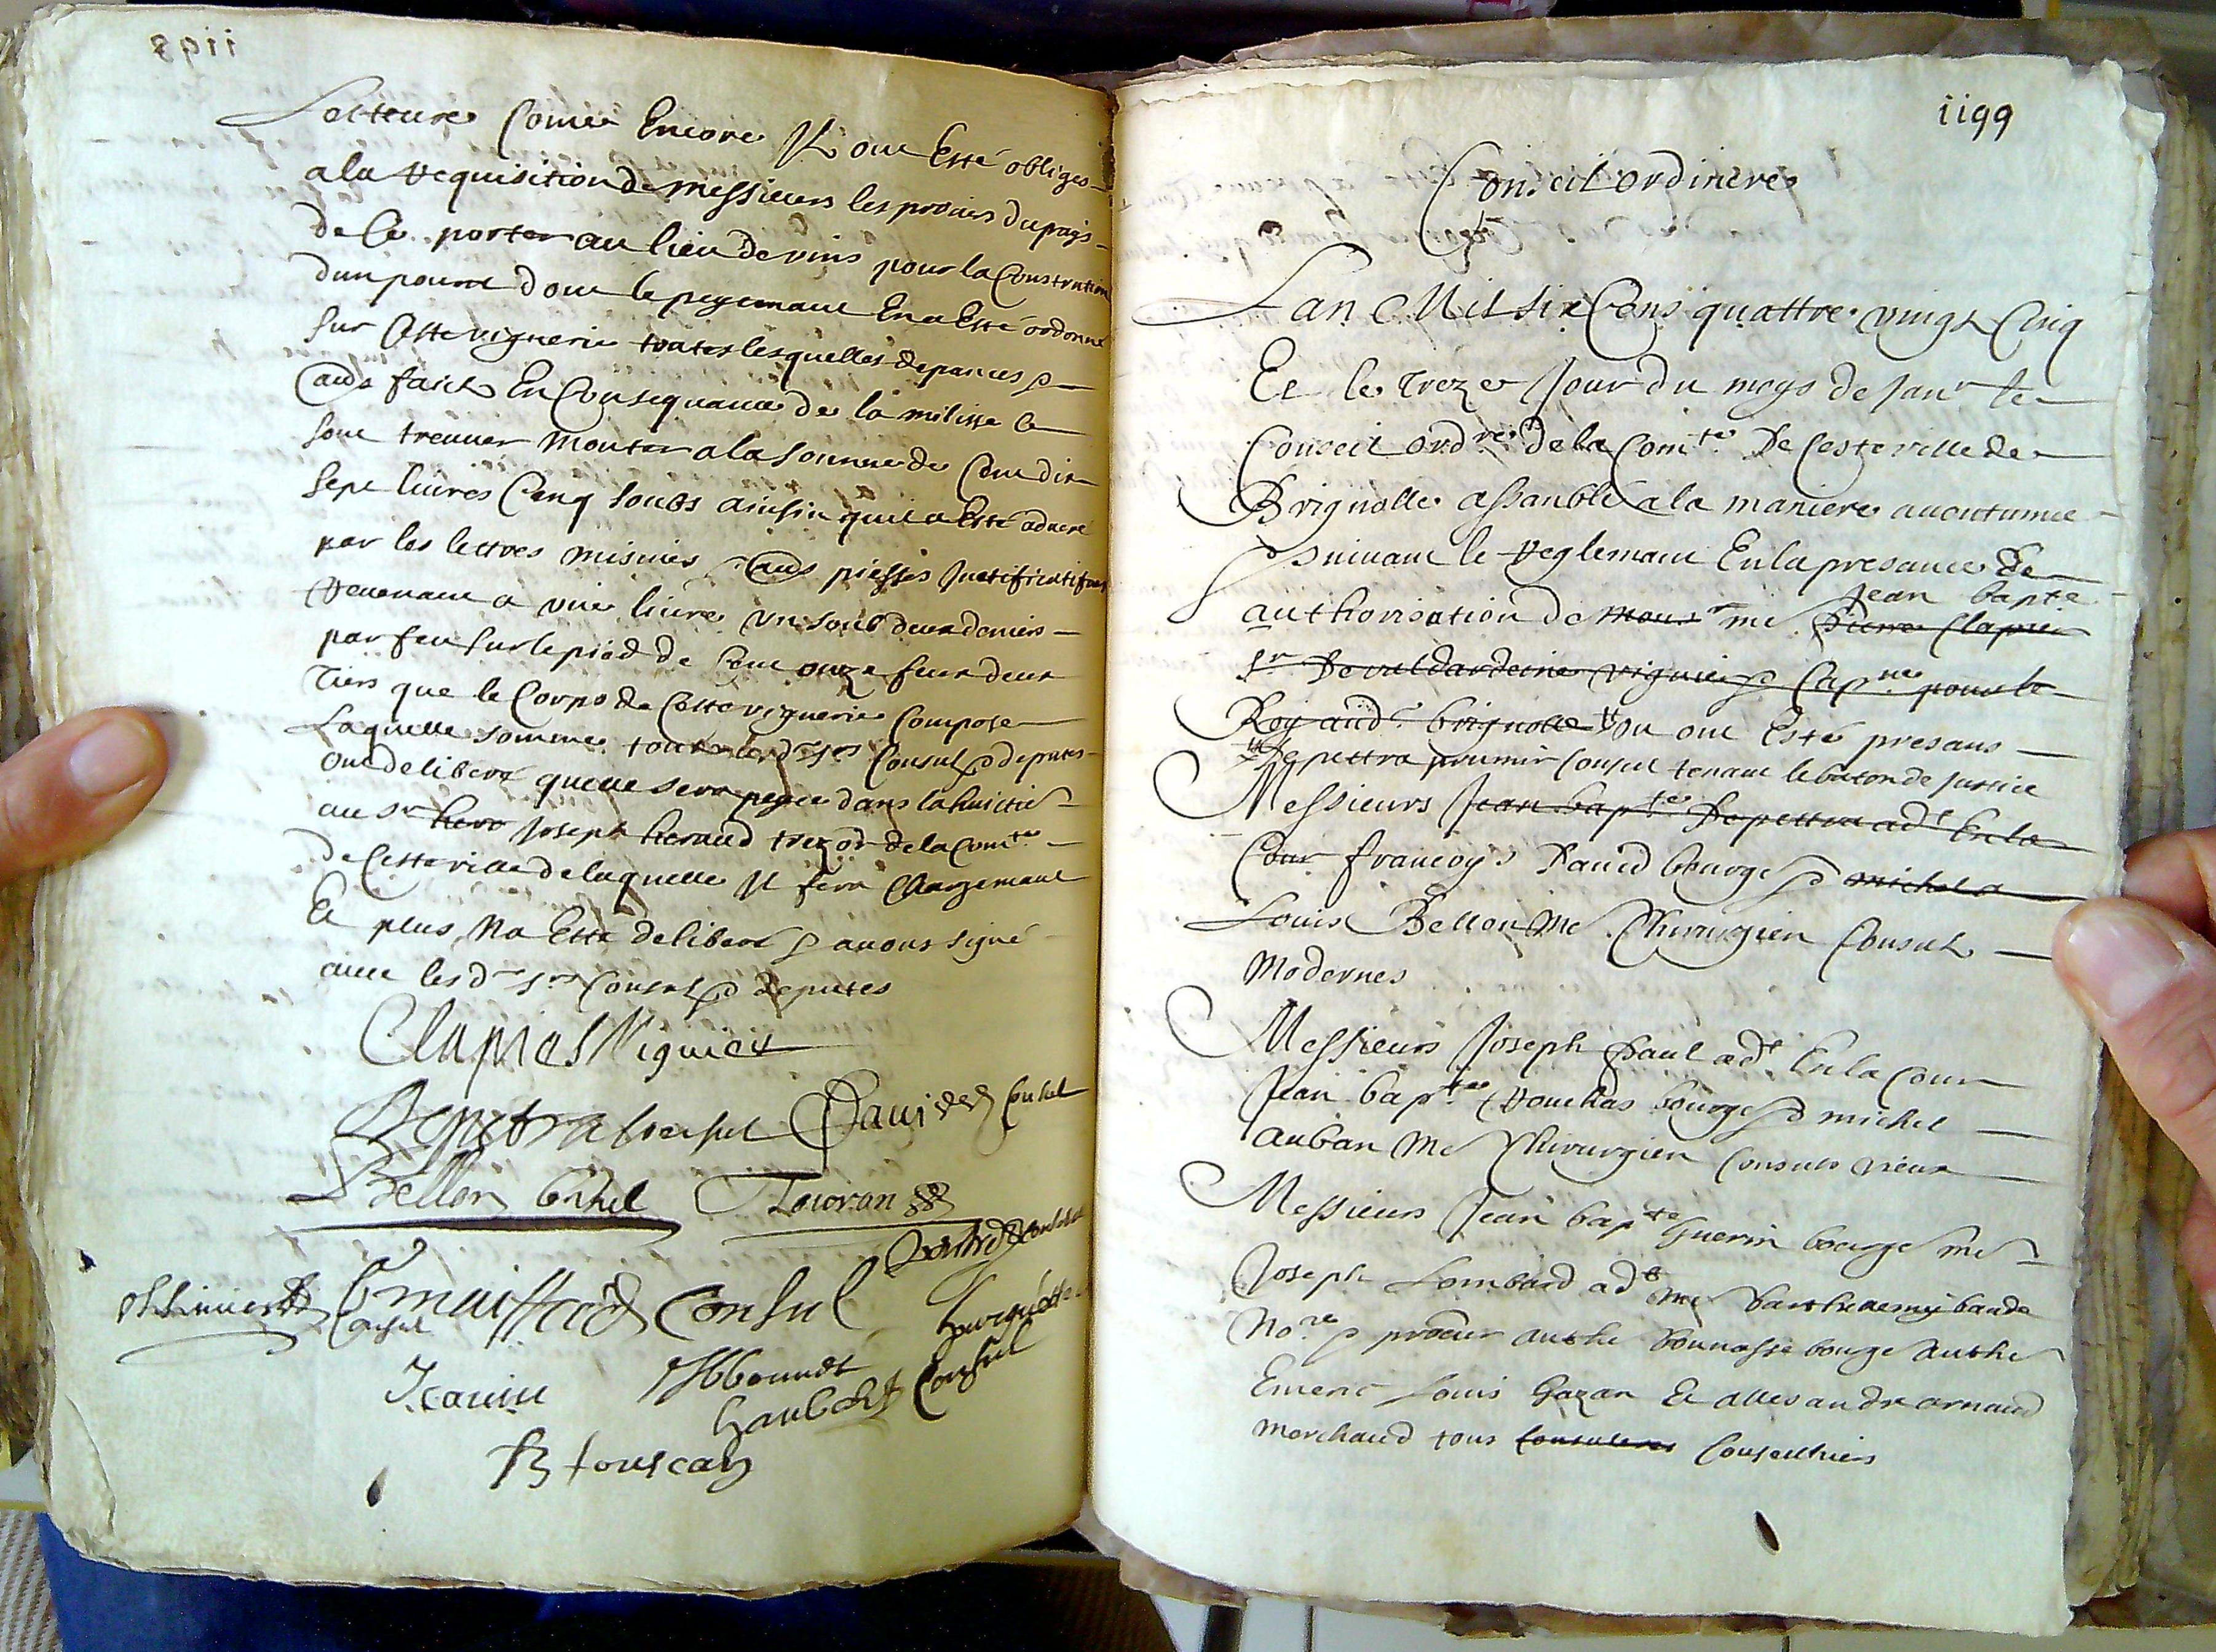 1198
Lecteure Comme Encore Il ont Esté obliges
a la requisition de messieurs les procurs du pays
de Ce porter au lieu de vins pour la Constrution
dun pount dont le peyemant En a Esté ordonné
sur Cette viguerie toutes lesquelles depances &
faict En Consequance de la milisse Ce
sont treuver monter a la somme de Cent dix
sept livres Cinq soubs ainsin quil a Esté advere
par les lettres misives & piesses Justificatifves
Revenant a vne livre vn soub deux deniers
par feu sur le pied de Cent onze feux deux
Tiers que le Corps de Cette viguerie Compose
Laquelle somme tous les d srs Consuls & deputes
ont deliberé quelle sera peyée dans la huictne
au Sr hero Joseph heraud trezor de la Comte
de Cette ville de laquelle Il fera Chargemant
Et plus Na Esté deliberé & avons signé
avec les d srs Consuls & deputes
Clapiers Viguier
Depetra Consul David Consul
Bellon Consul Touran
Consul Maiffred Consul
Jeaume
haubert Consul
B touscan
1199
Conseil ordinere
Lan Mil six Cens quattre vingt Cinq
Et le Treze Jour du moys de Janr le
Conseil ordre de la Comte De Ceste ville de
Brignolle assanblé a la maniere acoutumée
suivant le reglemant En la presance &
Jean bapte
authorisation de mons me Pierre Clapier
sr De vuldardeine viguier & Capne pour le
Roy aud brignolle Ou ont Esté presans
Depettra prumir Consul tenant le baton de Justice
Messieurs Jean bapte Depettra adt En la
Cour francoys David bourge & michel
Louis Bellon Me Chirurgien Consuls
Modernes
Messieurs Joseph Paul adt En la Cour
Jean bapte Rouchas bourge & michel
auban Me Chirurgien Consuls vieux
Messieurs Jean bapte Guerin bourge me
Joseph Lombard adt me barthellemy baude
Nore & procur anthe bounasse bourge anthe
Emeric Louis Gazan Et allexandre arnaud
marchand tous Consuleres Conseilhiers